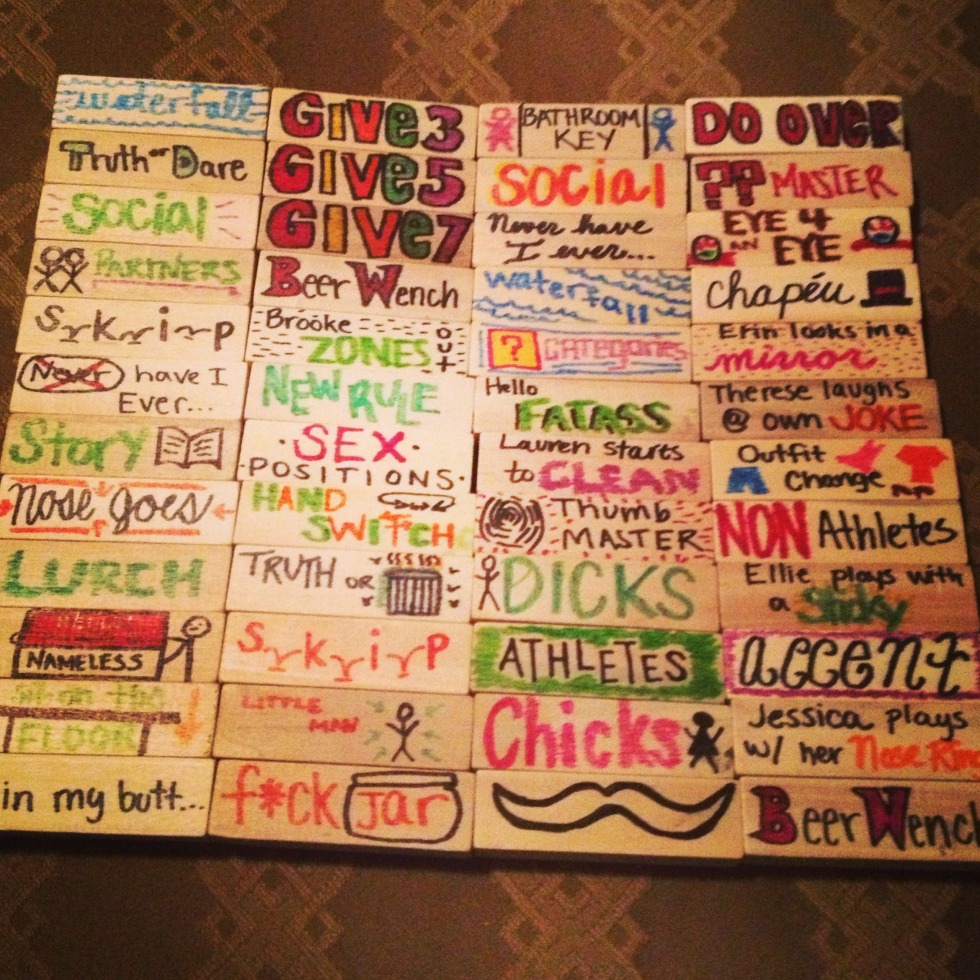 waterfall
Truth or Dare
Social
PARTNERS
S k i p
Never have I
Ever...
Story
Nose goes
LURCH
HELLO
NAMELESS
what the
FLOOR
in my butt...
GIVE 3
GIVE 5
GIVE 7
Beer Wench
Brooke
ZONES OUT
NEW RULE
SEX
POSITIONS
HAND
SWITCH
TRUTH OR
S k i p
LITTLE
MAN
f*ck Jar
BATHROOM
KEY
SOCIAL
Never have
I ever...
waterfall
? CATEGORIES
Hello
FATASS
Lauren starts
to CLEAN
Thumb
MASTER
DICKS
ATHLETES
Chicks
DO OVER
?? MASTER
EYE 4
AN EYE
chapéu
Erin looks in a
mirror
Therese laughs
@ own JOKE
Outfit
Change
NON Athletes
Ellie plays with
a
accent
Jessica plays
w/ her Nose Rin
Beer Wench